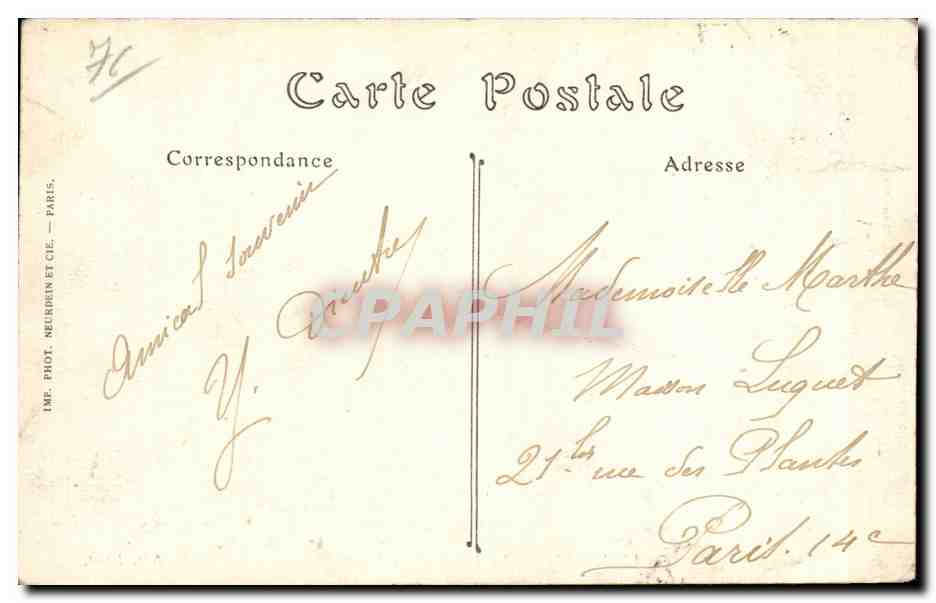 Carte Postale
Correspondance
Adresse
IMP. PHOT. NEURDEIN ET CIE. — PARIS.
Amical Souvenir
Y.
CPAPHIL
Mademoiselle Marthe
Maison Luquet
21 bis rue des Plantes
Paris. 14e